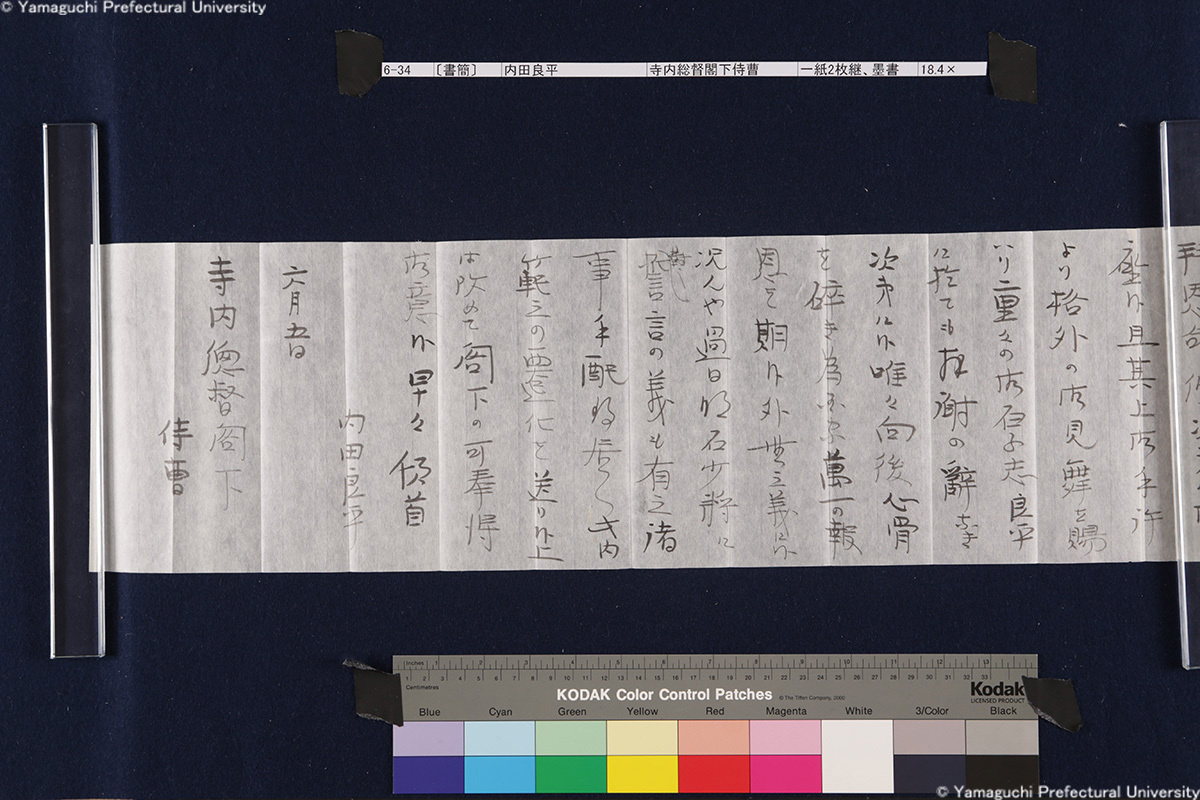 © Yamaguchi Prefectural University
6-34 〔書簡〕 内田良平 寺内総督閣下侍曹 一紙2枚継、墨書 18.4×
且其上御手許
より格外の御見舞を賜
はり重々の御厚志良平
に於ても拝謝の辞なき
次第に候唯々向後心骨
を砕き為 萬一の報
恩を期候外無之義に候
況んや過日明石少将に
言の義も有之諸
事手配 居候 内
範之の霊 を送り候上
は改めて閣下の可奉得
御意候早々頓首
六月五日
内田良平
寺内総督閣下
侍曹
Inches 1 2 3 4 5 6 7 8 9 10 11 12 13
Centimetres
KODAK Color Control Patches © The Tiffen Company, 2000
Kodak
LICENSED PRODUCT
Blue Cyan Green Yellow Red Magenta White 3/Color Black
© Yamaguchi Prefectural University